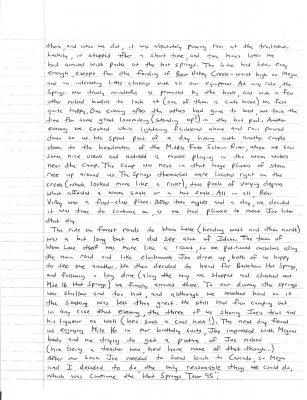 there, and when we did, it was absolutely pouring rain at the trailhead,
luckily, it stopped after a short time and two hours later we
had arrived with packs at the hot springs. The hike had been easy
enough, except for the fording of Bear Valley Creek - waist high on Megan
and an interesting little challenge with all our equipment. At any rate, the
Springs was totally wonderful as promised by the book and with a few
other naked bathers to look at (one of them a cute babe) we felt
quite happy. One evening after the others had gone to bed we took the
time for some great lovemaking (standing up!) in the hot pool. Another
evening we soaked while lightning flickered above and rain poured
down on us. We spent part of a day hiking with another couple
down to the headwaters of the Middle Fork Salmon River, where we saw
some nice views and noticed a moose playing in the warm waters
near the camp. The camp was neat in that huge plumes of steam
rose up around us. The Springs themselves were located right on the
creek (which looked more like a river), two pools of varying degree
which afforded a warm soak or a hot soak. All in all, Bear
Valley was a first-class place. After two nights and a day, we decided
it was time to continue on as we had planned to meet Joe later
that day.
The ride on forest roads to Warm Lake (heading west and then north)
was a bit long but we did see alot of Idaho. The town of
Warm Lake itself was more like a resort so we performed donuts along
the main road and like clockwork Joe drove up, both of us happy
to see one another. We then decided to head for
and following a long drive (along the way we stopped and checked out
Mile 16 Hot Springs) we finally arrived there. To our dismay the springs
was shallow and too hot, and although we worked hard on it
the soaking was less than great. We still had fun camping out
in any case that evening the three of us sharing Joe's tent and
his liqueur as well (Joe's such a cool host!). The next day found
us enjoying Mile 16 in our birthday suits, Joe impressed with Megan's
body and me trying to get a picture of Joe naked
After our soak Joe needed to head back to Cascade, so Megan
and I decided to do the only reasonable thing we could do,
which was continue the Hot Springs Tour '95.